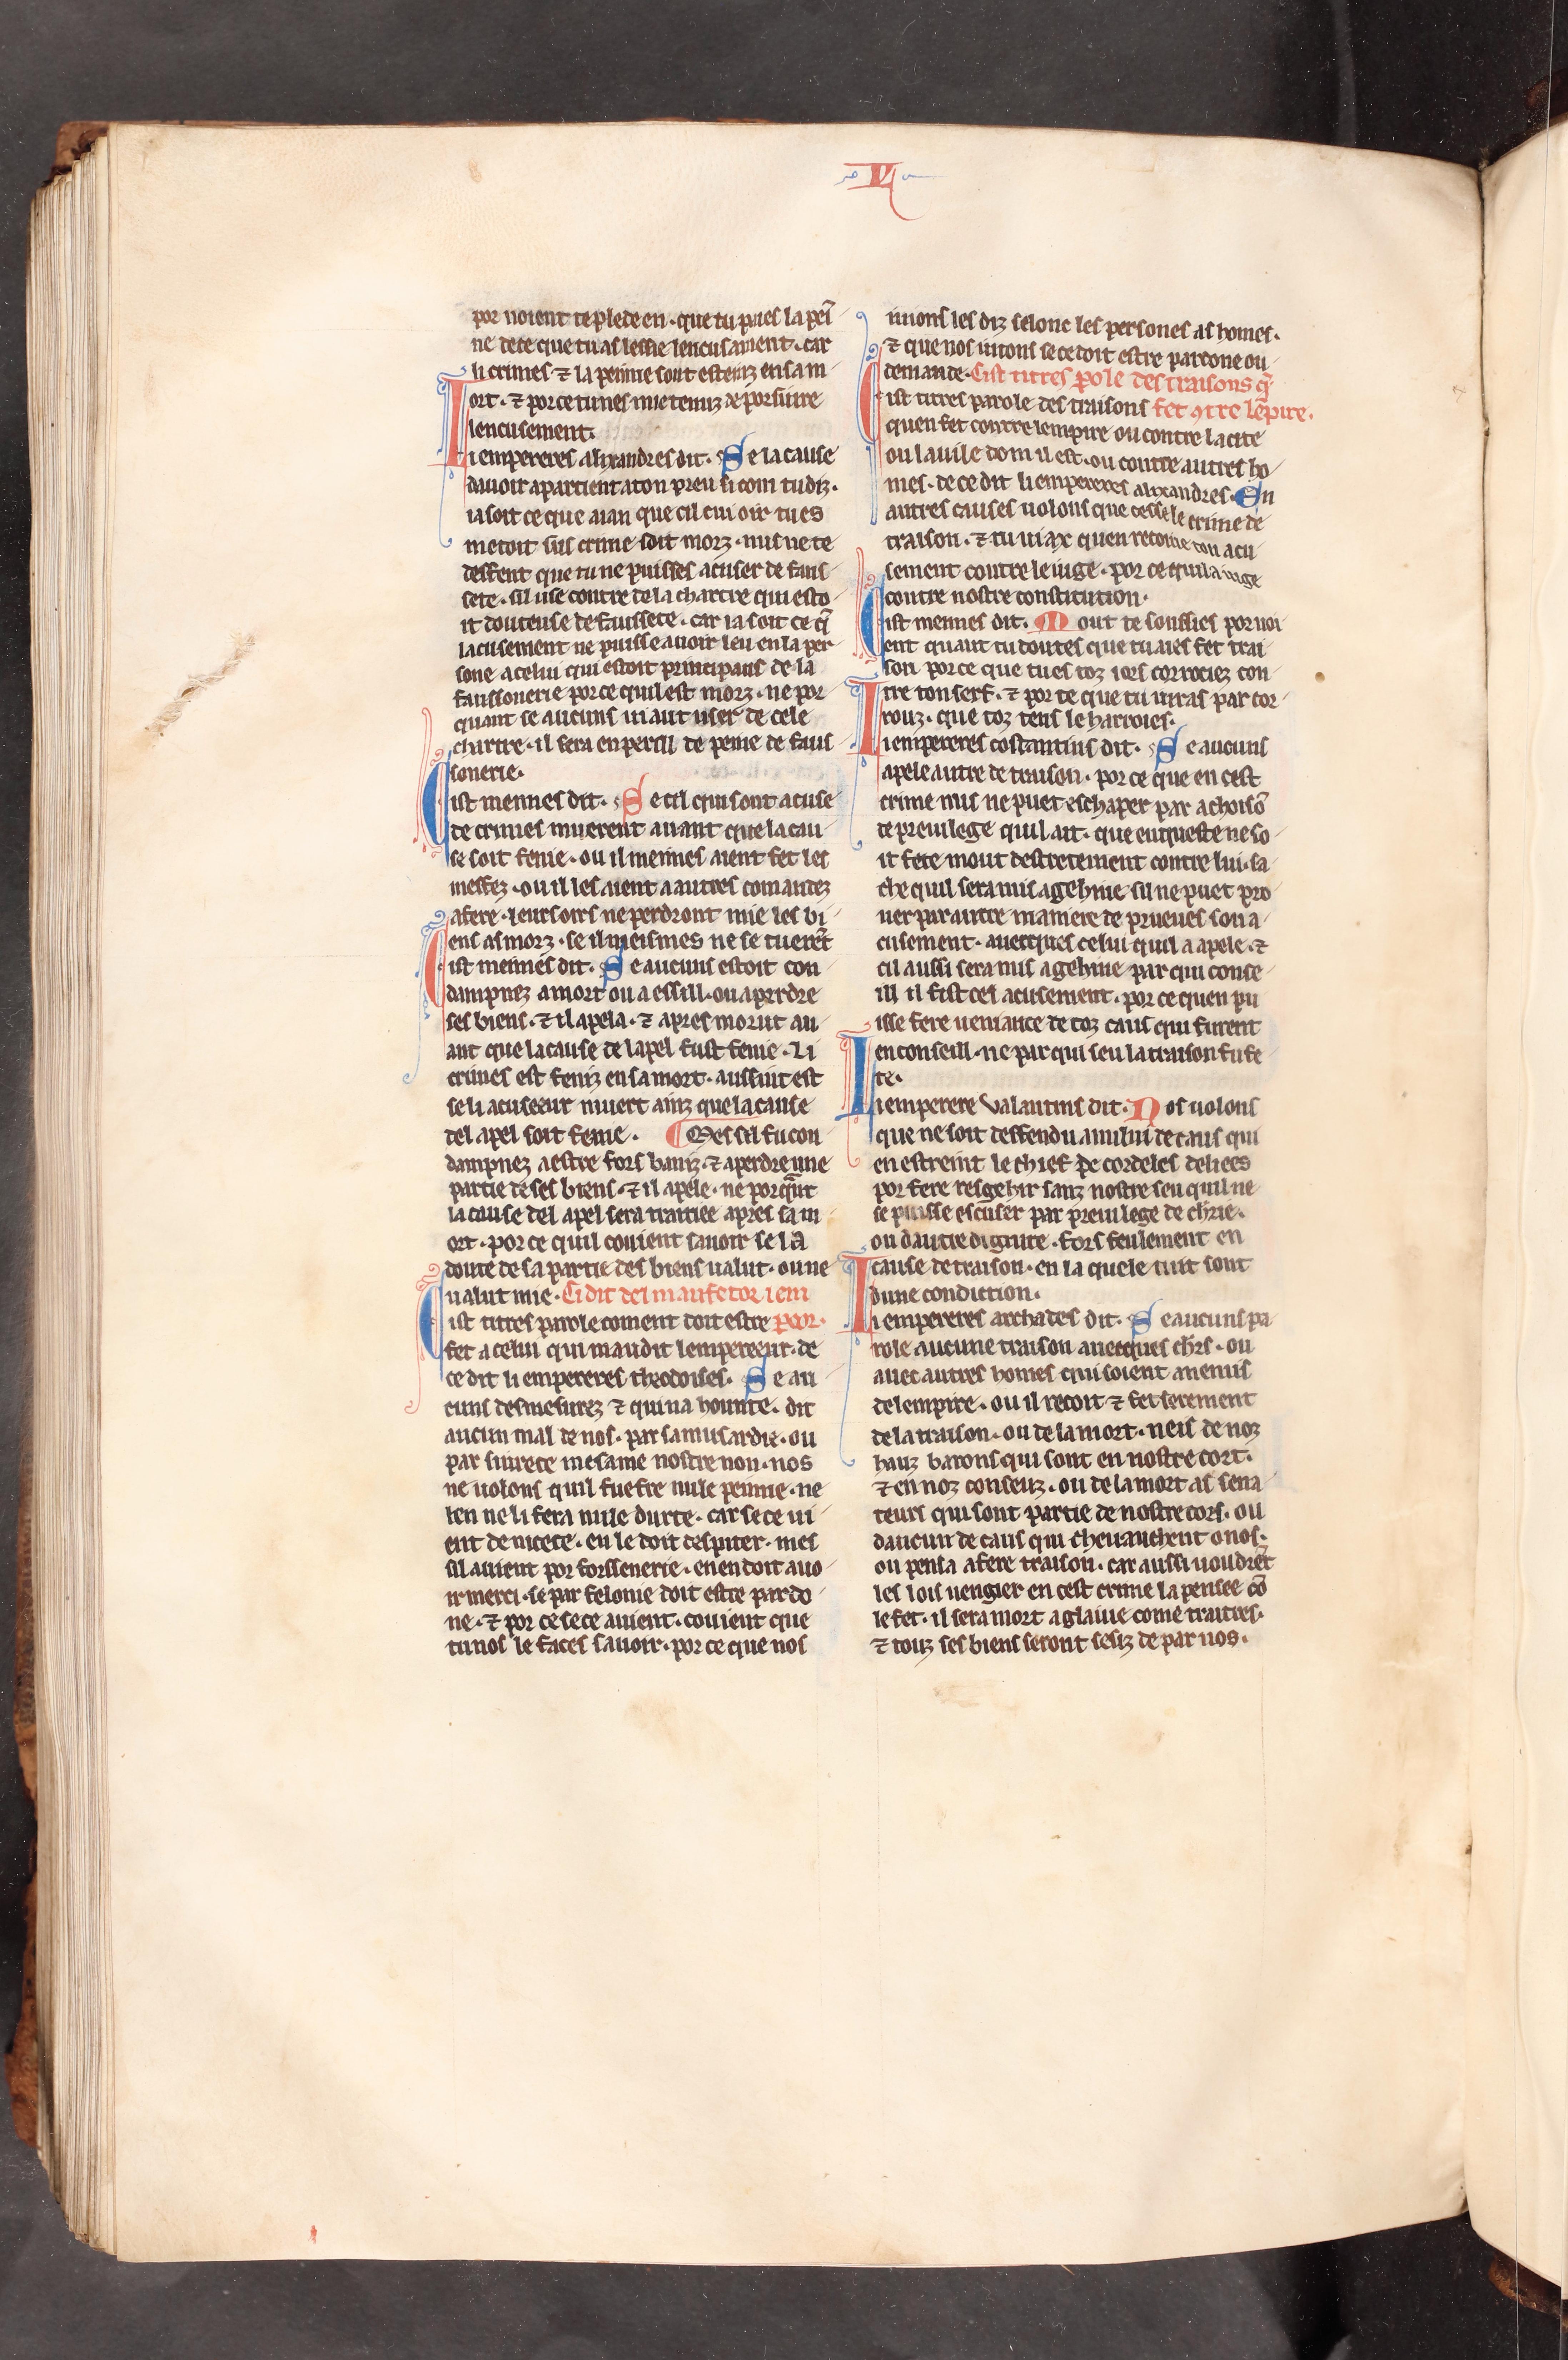 V
por noient te plede en · que tu pues la pei
ne de ce que tu as lessie lencusament · car
li crimes ⁊ la peinne sont esteinz en sa m
ort · ⁊ por ce tu nes mie tenuz de porsuire
lencusement ·
Li empereres alixandres dit · Se la cause
dauoir apartient a ton preu si com tu diz ·
ia soit ce que aian que cil cui oir tu es
metoit sus crime soit morz · nus ne te
deffent que tu ne puisses acuser de faus
sete · sil use contre de la chartre qui esto
it douteuse de faussete · car ia soit ce q̄
lacusement ne puisse auoir leu en la per
sone a celui qui estoit principaus de la
faussonerie por ce quil est morz · ne por
quant se aucuns uiaut user de cele
chartre · il sera en perill de peine de faus
sonerie ·
Cist meimes dit · Se cil qui sont acuse
de crimes muerent auant que la cau
se soit fenie · ou il meimes aient fet les
meffez · ou il les aient a autres comandez
a fere · leurs oirs ne perdront mie les bi
ens as morz · se il meismes ne se tuerēt
Cist meimes dit · Se aucuns estoit con
dampnez a mort ou a essill · ou a perdre
ses biens · ⁊ il apela · ⁊ apres morut au
ant que la cause de lapel fust fenie · Li
crimes est feniz en sa mort · aussint est
se li acuseeur muert ainz que la cause
del apel soit fenie · Mes sil fu con
dampnez a estre fors baniz · ⁊ a perdre une
partie de ses biens · ⁊ il apele · ne porquāt
la cause del apel sera traitiee apres sa m
ort · por ce quil couient sauoir se la
doute de sa partie des biens ualut · ou ne
ualut mie · Ci dit del maufetor lem
Cist titres parole coment doit estre peor ·
fet a celui qui maudit lempereeur · de
ce dit li empereres theodoises · Se au
cuns desmesurez ⁊ qui na hounte · dit
aucun mal de nos · par sa musardie · ou
par iurece mesame nostre non · nos
ne uolons quil suefre nule peinne · ne
len ne li fera nule durte · car se ce ui
ent de nicete · en le doit despiter · mes
sil auient por forssenerie · en en doit auo
ir merci · se par felonie doit estre pardo
ne · ⁊ por ce se ce auient · couient que
tu nos le faces sauoir · por ce que nos
iuions les diz selonc les persones as homes ·
⁊ que nos iuions se ce doit estre pardone ou
demande · Cist titres ꝑole des traisons q̄
Cist titres parole des traisons fet ꝯtre lēpire ·
quen fet contre lempire ou contre la cite
ou la uile dom il est · ou contre autres ho
mes · de ce dit li empereres alixandres · En
autres causes uolons que cesse le crime de
traison · ⁊ tu uiax quen retorne ton acu
sement contre le iuge · por ce quil a iuge
contre nostre constitution ·
Cist meimes dit · Mout te soussies por noi
ent quant tu doutes que tu aies fet trai
son por ce que tu es toz iors corrociez con
tre ton serf · ⁊ por ce que tu iuras par cor
rouz · que toz tens le harroies ·
Li empereres costantins dit · Se aucuns
apele autre de traison · por ce que en cest
crime nus ne puet eschaper par achoisō
de preuilege quil ait · que enqueste ne so
it fete mout destretement contre lui · sa
che quil sera mis a gehine sil ne puet pro
uer par autre maniere de prueues son a
cusement · auecques celui quil a apele · ⁊
cil aussi sera mis a gehine par qui conse
ill il fist cel acusement · por ce quen pu
isse fere ueniance de toz caus qui furent
en conseill · ne par qui seu la traison fu fe
te ·
Li emperere Valantins dit · Nos uolons
que ne soit deffendu a nului de caus qui
en estreint le chief de cordeles deliees
por fere resgehir sanz nostre seu quil ne
se puisse escuser par preuilege de chrie ·
ou dautre dignite · fors seulement en
cause de traison · en la quele tuit sont
dune condicion ·
Li empereres archades dit · Se aucuns pa
role aucune traison auecques chr̄s · ou
auec autres homes qui soient anemis
de lempire · ou il recoit ⁊ fet serement
de la traison · ou de la mort · neis de noz
hauz barons qui sont en nostre cort ·
⁊ en noz conseuz · ou de la mort as sena
teurs qui sont partie de nostre cors · ou
daucun de caus qui cheuauchent o nos ·
ou pensa a fere traison · car aussi uoudrēt
les lois uengier en cest crime la pensee cō
le fet · il sera mort a glaiue come traitres ·
⁊ touz ses biens seront sesiz de par nos ·